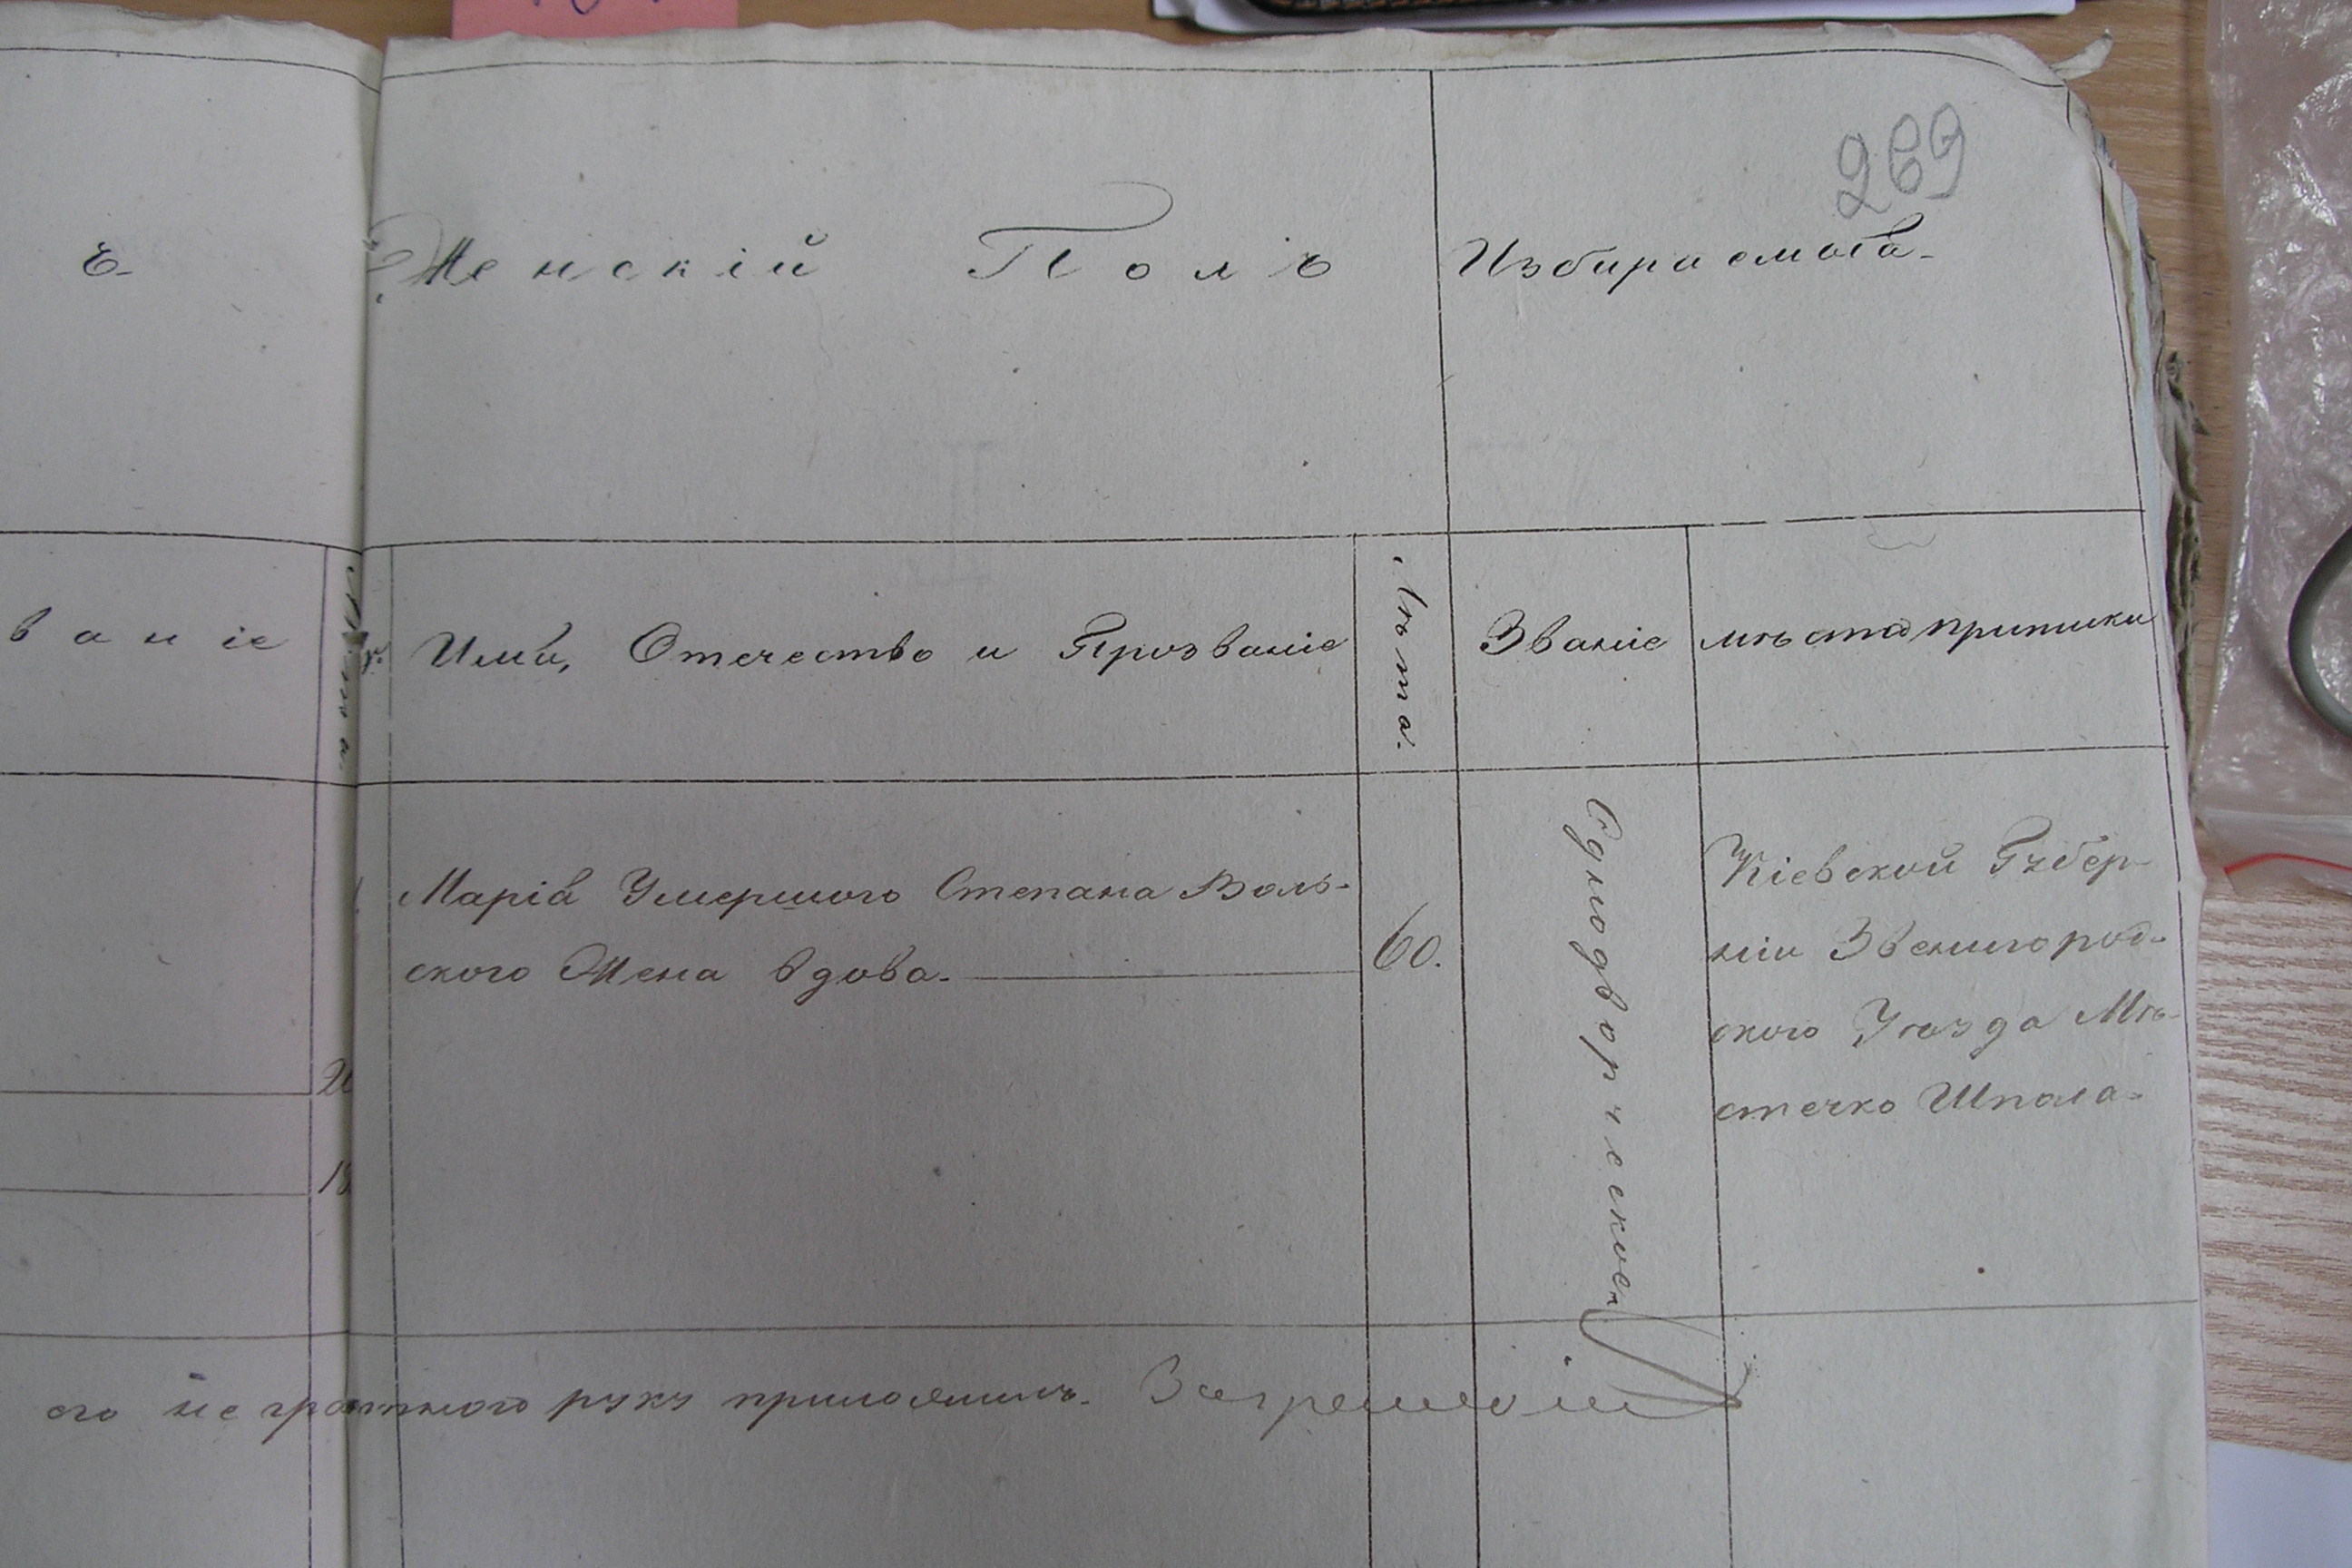 269
Е.
Женскій Полъ
Избираемыя
ваніе
Лѣта.
Имя, Отечество и Прозваніе
Лѣта.
Званіе
мѣсто приписки
1.
Марія Умершого Степана Воль-
ского Жена вдова.
60.
Однодворческое
Кіевской Губер-
ніи Звенигород-
ского Уѣзда Мѣ-
стечко Шпола.
20
18
ого не грамотного руку приложилъ.